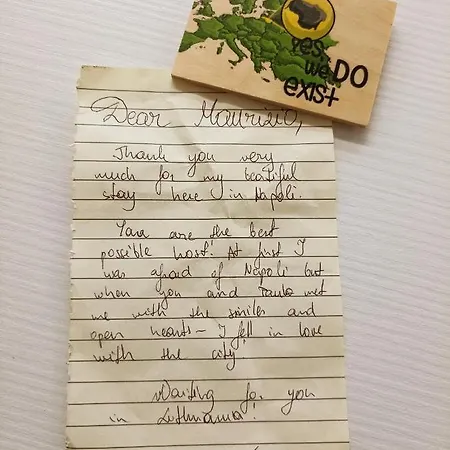 yes
we DO
exist
Dear Maurizio,
Thank you very
much for my beautiful
stay here in Napoli.
You are the best
possible host! At first I
was afraid of Napoli but
when you and met
me with the smiles and
open hearts – I fell in love
with the city!
Waiting for you
in Lithuania!